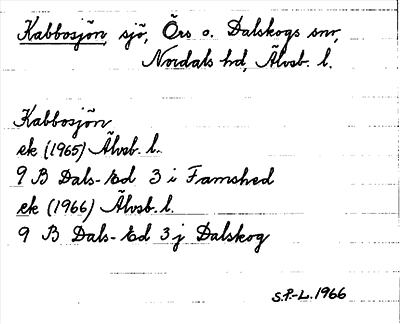 Kabbosjön, sjö, Örs o. Dalskogs snr,
Nordals hd, Älvsb. l.
Kabbosjön
ek (1965) Älvsb. l.
9 B Dals-Ed 3 i Famshed
ek (1966) Älvsb. l.
9 B Dals-Ed 3 j Dalskog
S.P.-L. 1966